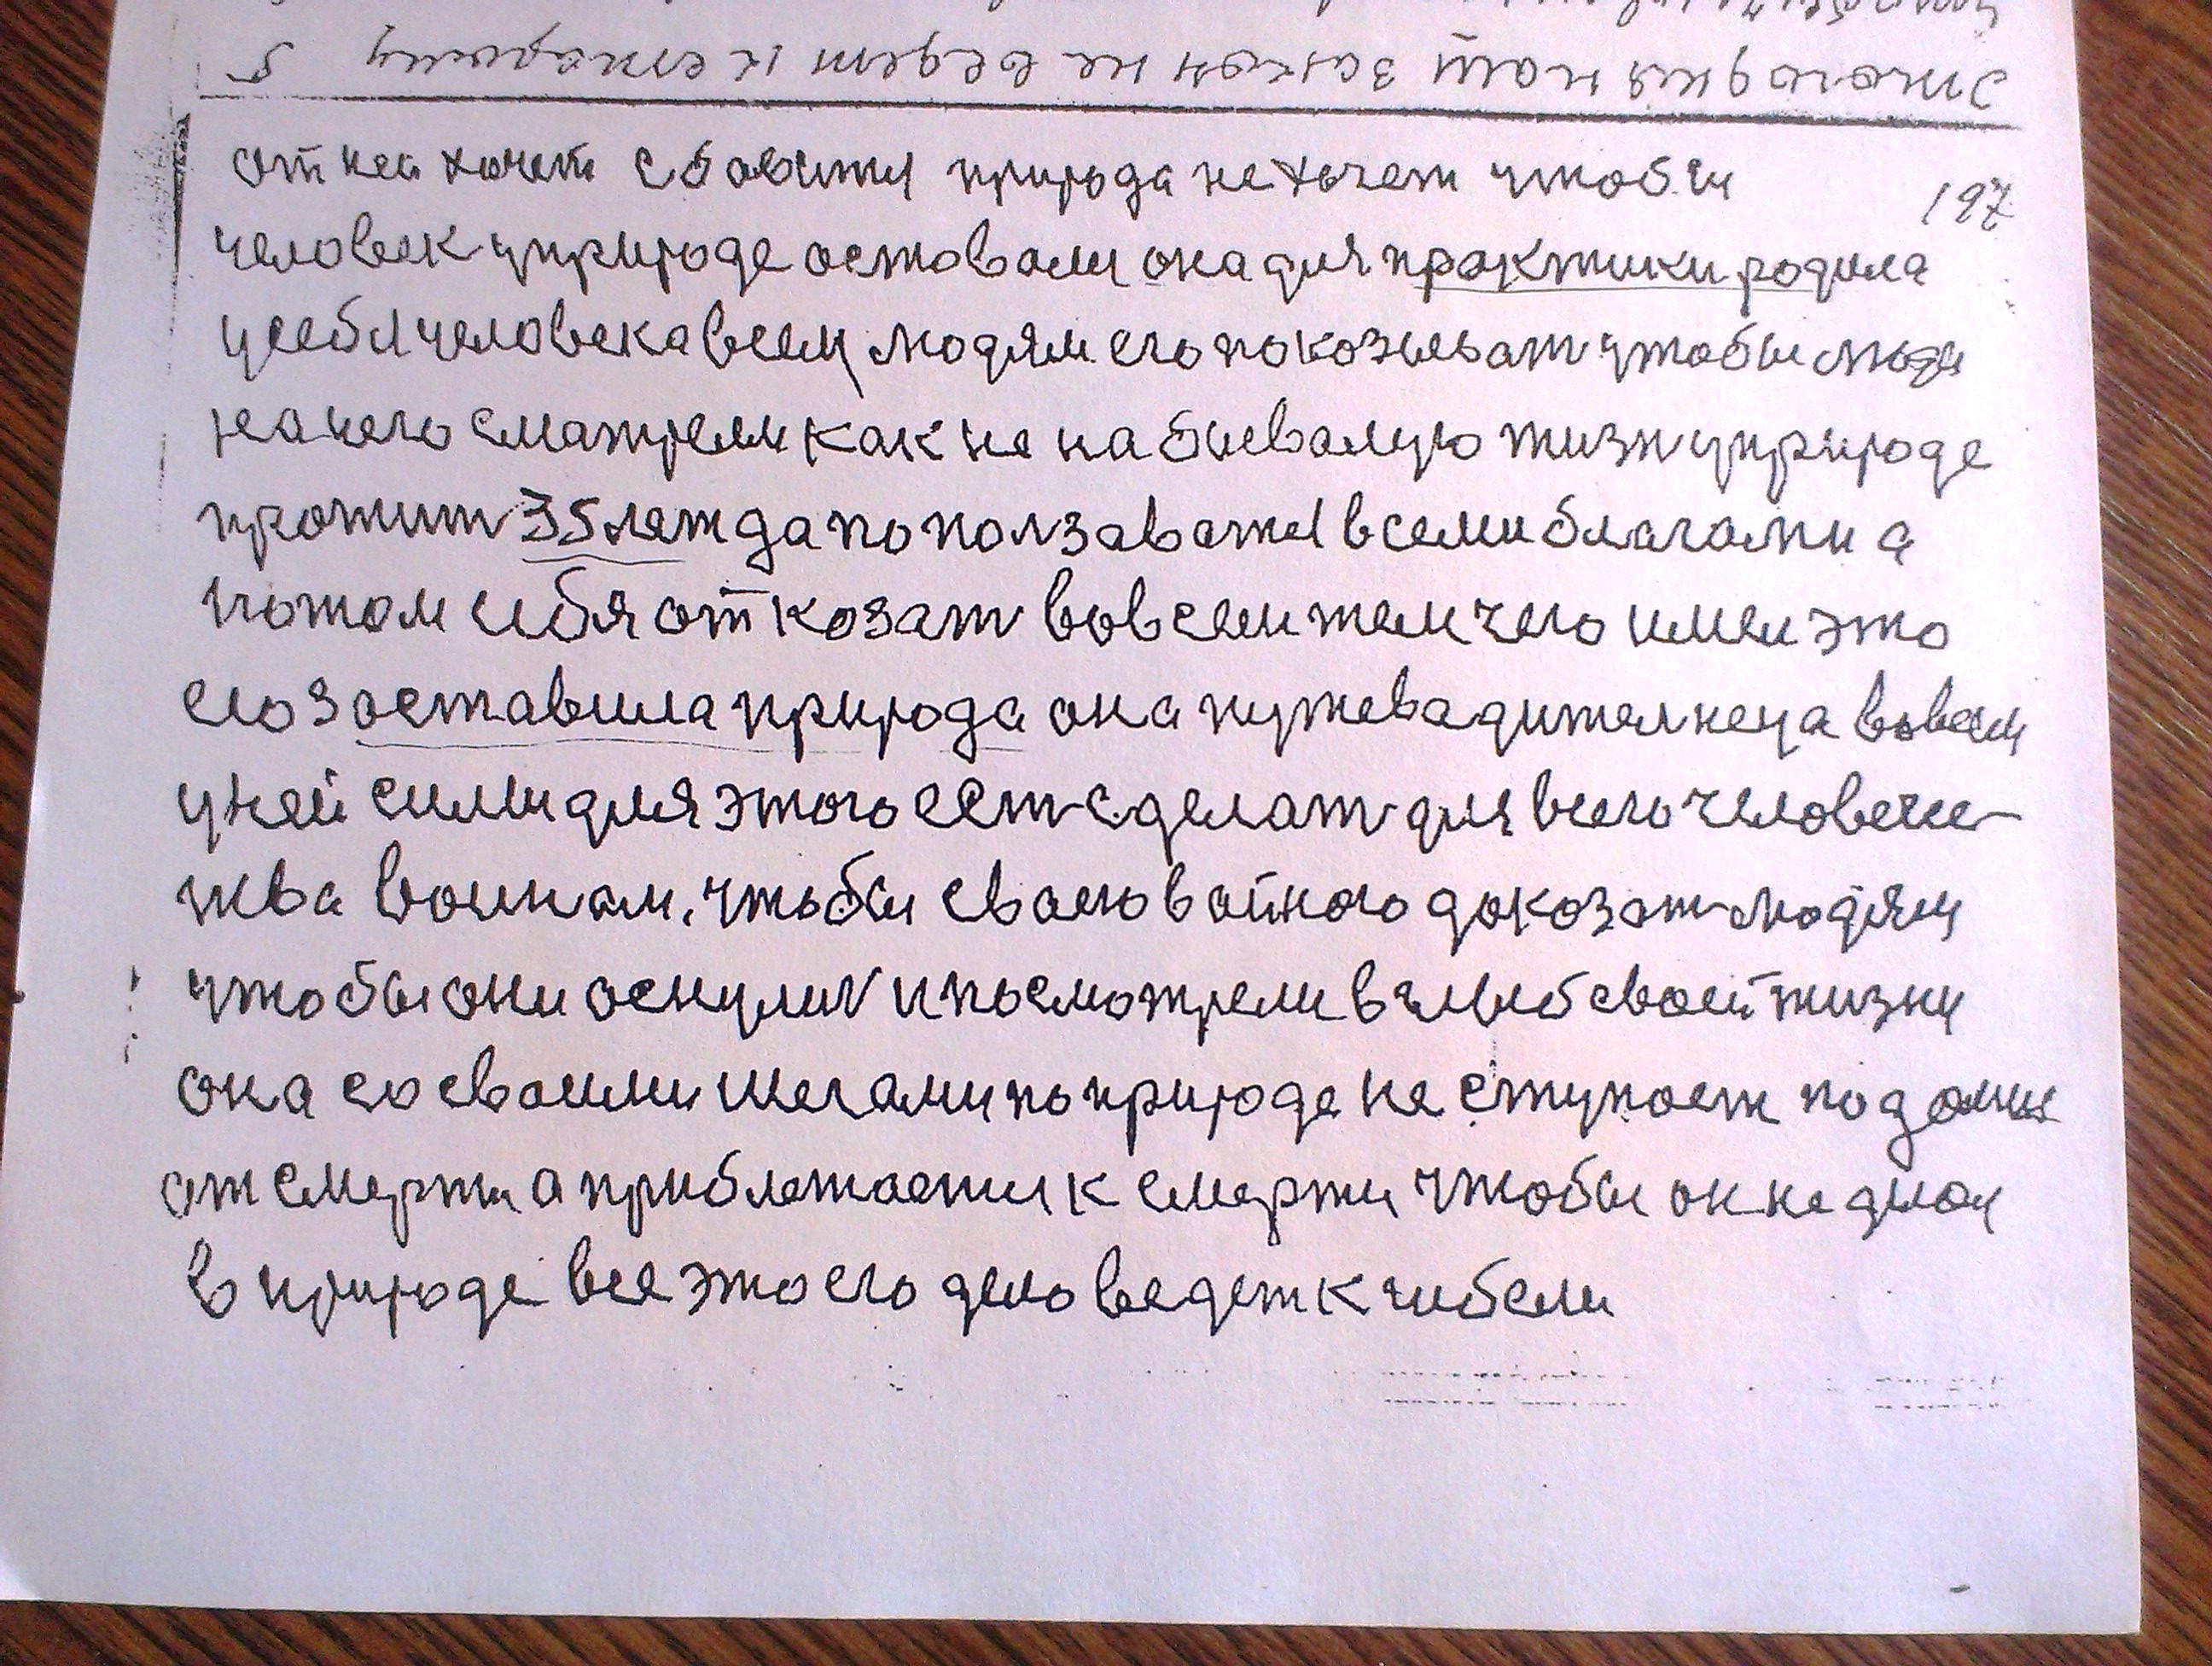 от неи хочет сбавится природа не хочет чтобы
197
человек уприроде оставали она для практики родила
усебя человека всем людям его показыват чтобы люди
на него сматрели как не на бывалую жизн уприроде
прожит 35 лет да попользаватся всеми благами а
потом себя отказат вовсем тем чего имеи это
его заставила природа она путевадителнеца вовсем
уней силы для этого ест сделат для всего человечес-
жва воинам. чтобы сваею вайною доказат людям
чтобы они оснулис и посмотрели вглыб сваей жизни
она со сваими шегами по природе не ступает подалше
от смерти а приближается к смерти чтобы он не делал
в природе все это его дело ведет к гибели